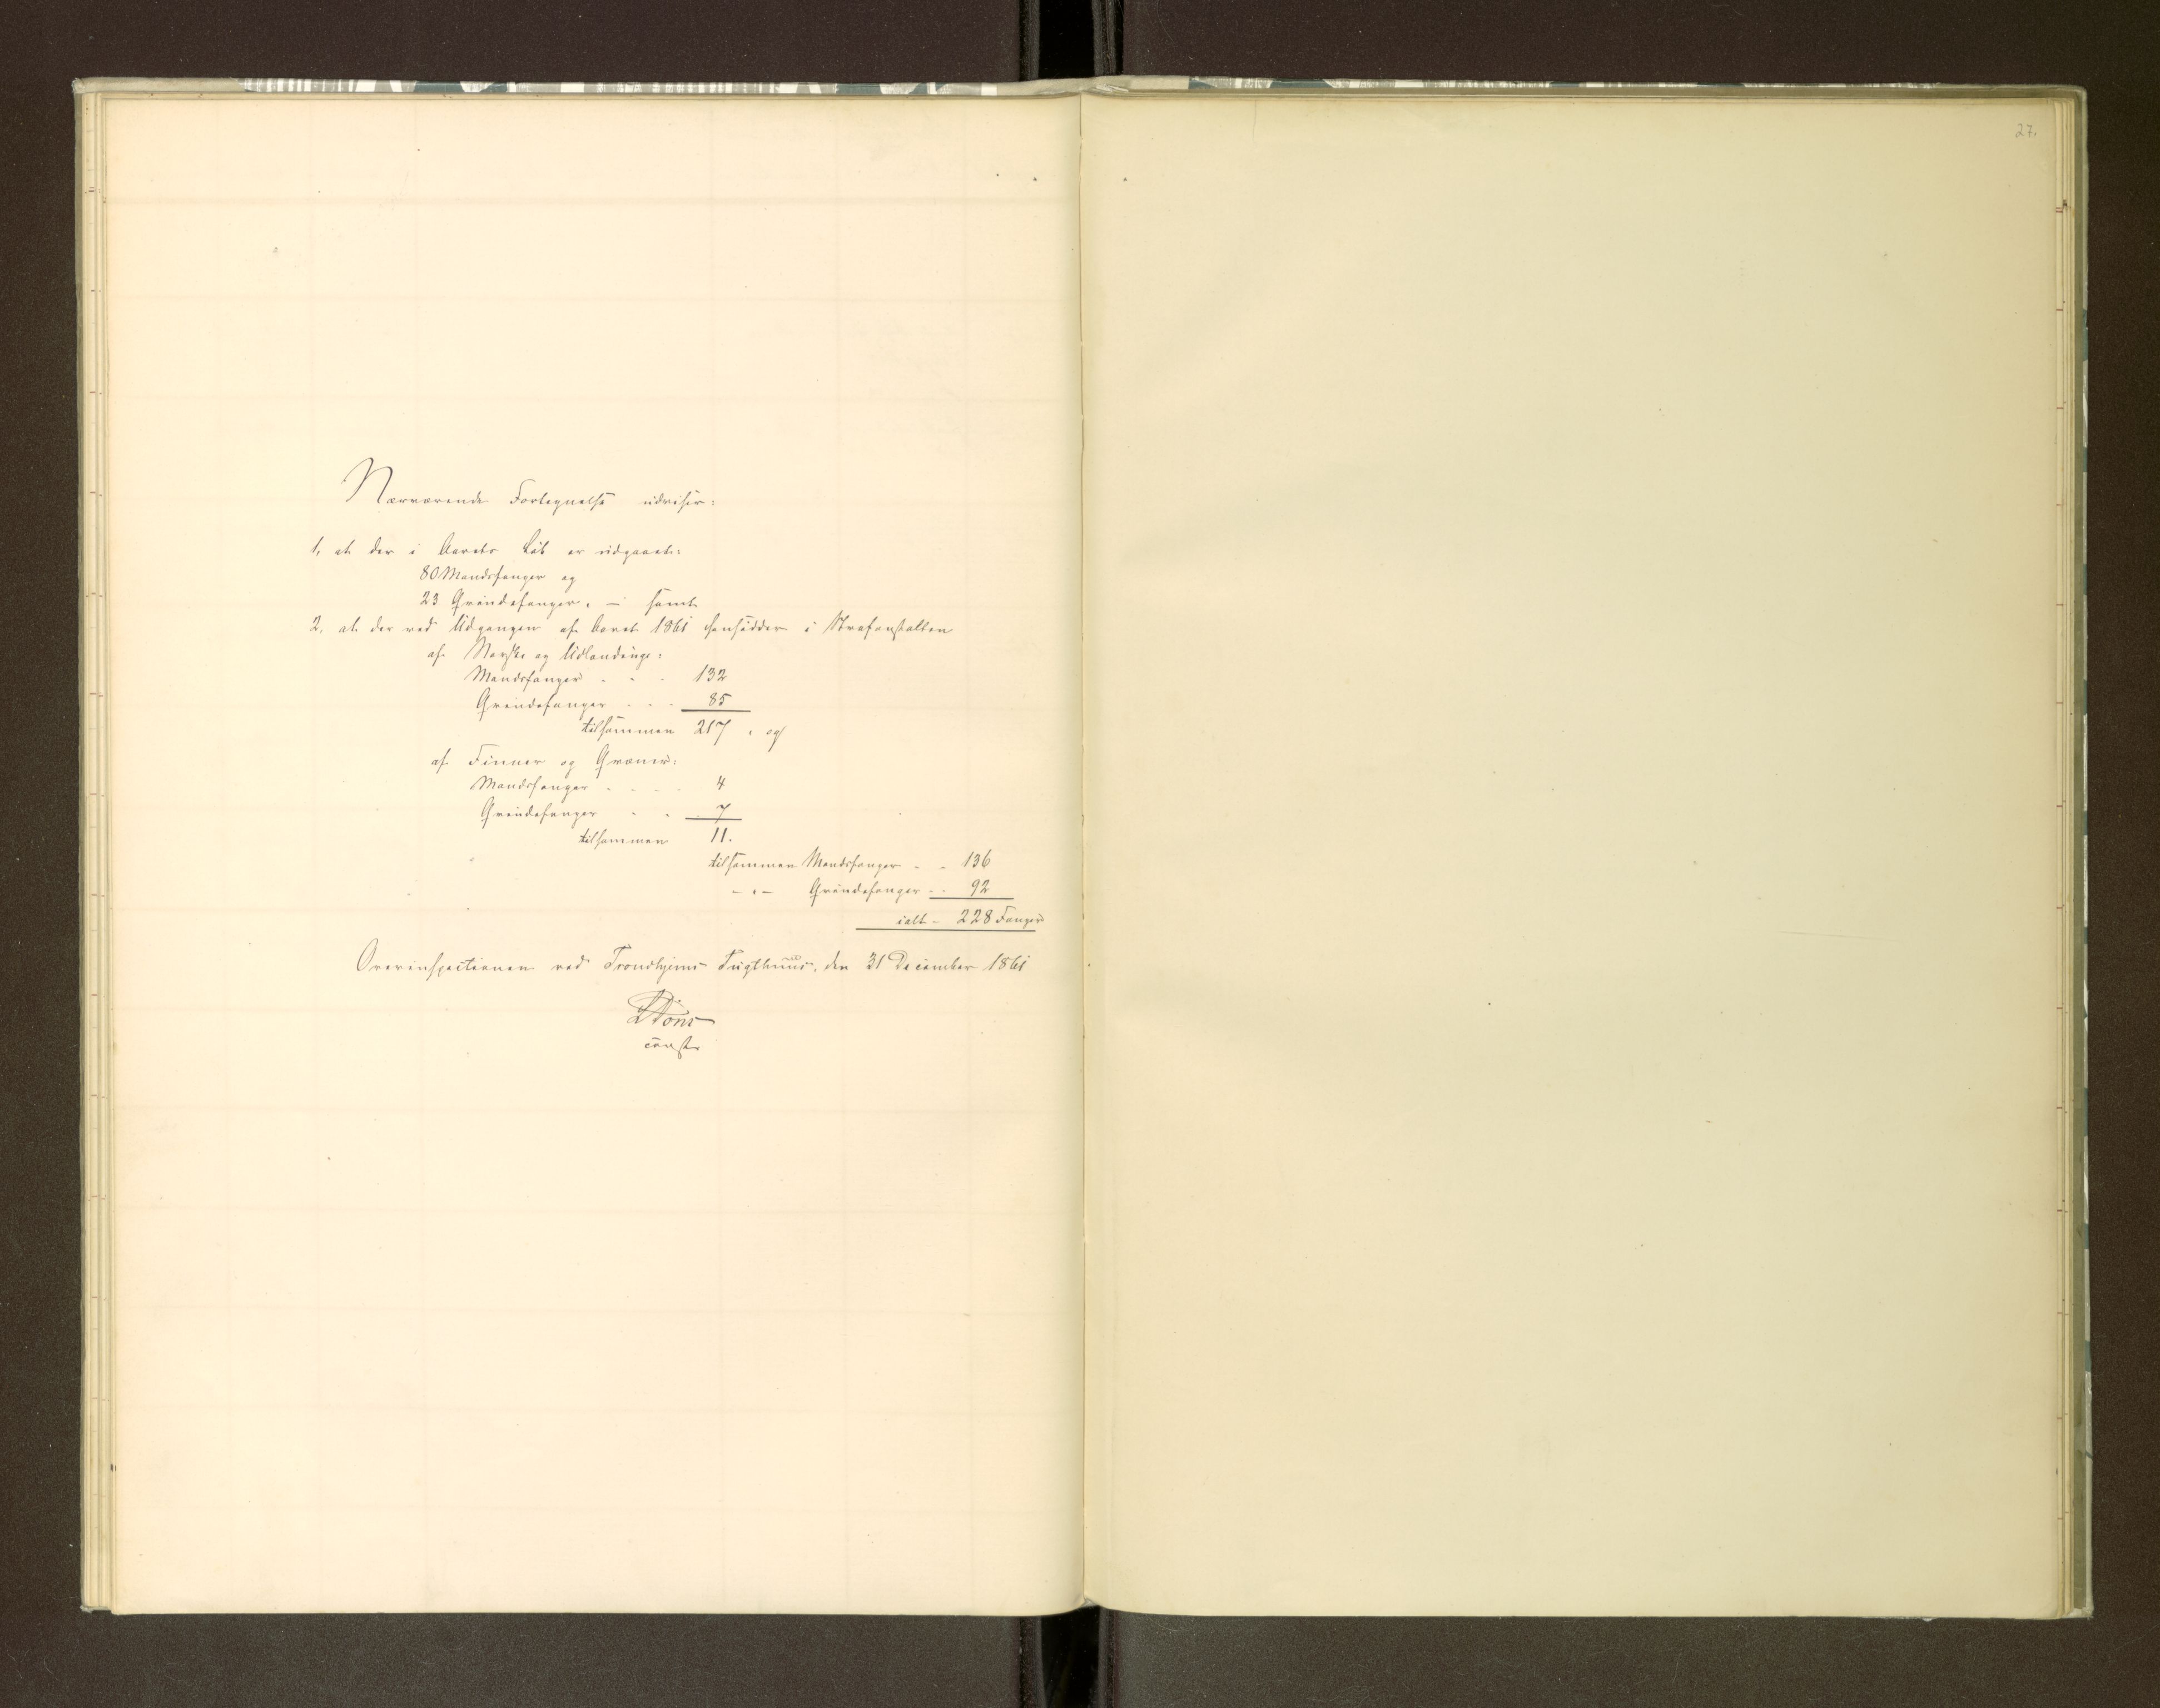 27.
Nærværende Fortegnelse udviser:
1, at der i Aarets Løb er udgaaet:
80 Mandsfanger og
23 Qvindefanger, — samt
2, at der ved Udgangen af Aaret 1861 hensidder i Strafanstalten
af Norske og Udlændinge:
Mandsfanger - - - 132
Qvindefanger - - - 85
tilsammen 217, og
af Finner og Qvæner:
Mandsfanger - - - - 4
Qvindefanger - - 7
tilsammen 11.
tilsammen Mandsfanger - - 136
— " — Qvindefanger - - 92
ialt - 228 Fanger
Overinspectionen ved Trondhjems Tugthuus, den 31 December 1861
const.